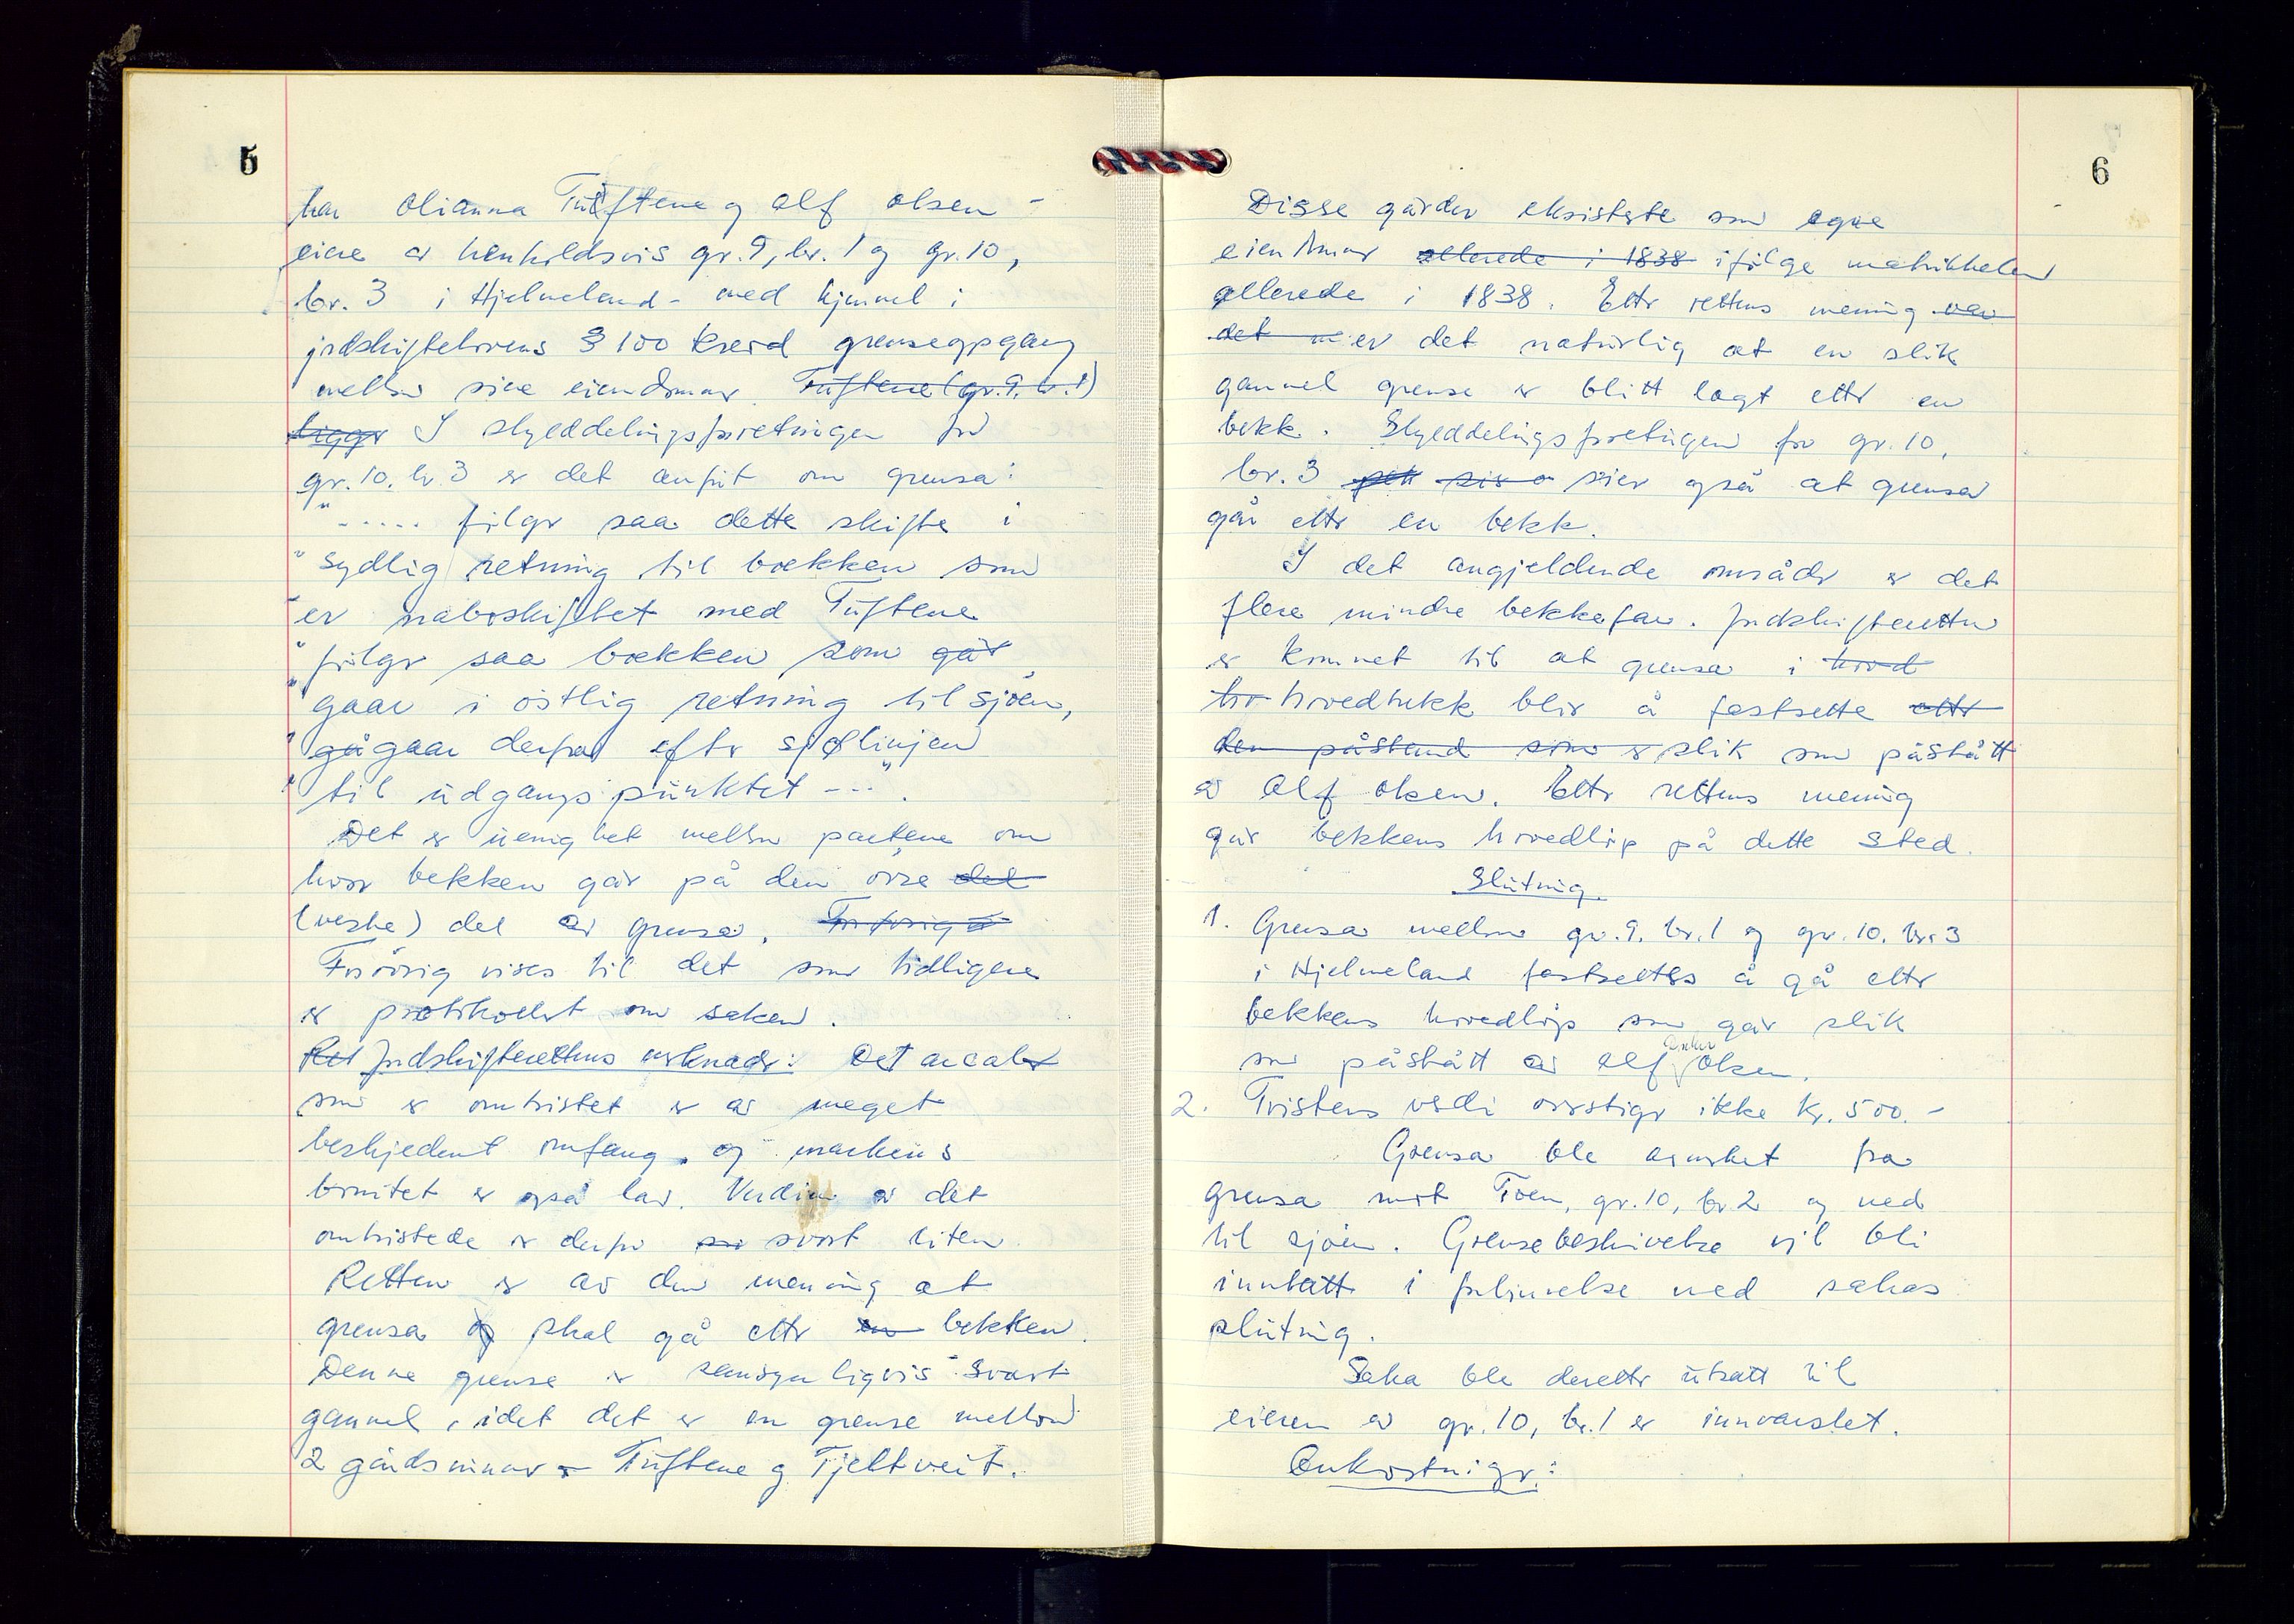 5
har Olianna Tuftene og Alf Olsen -
eiere av henholdsvis gr. 9, br. 1 og gr. 10,
br. 3 i Hjelmeland - med hjemmel i
jordskiftelovens § 100 krevd grenseoppgang
mellom sine eiendommer. Tuftene (gr. 9. br. 1)
ligger I skylddelingsforretningen for
gr. 10, br. 3 er det anført om grensa:
"..... følger saa dette skifte i
"sydlig retning til bækken som
"er naboskiftet med Tuftene
"følger saa bækken som går
"gaar i östlig retning til sjöen,
"gå gaar derfra efter sjølinjen
"til udgangspunktet ---".
Det er uenighet mellom partene om
hvor bekken går på den övre del
(vestre) del av grensa. Forövrig
Forövrig vises til det som tidligere
er protokollert om saken.
Ret Jordskifterettens merknader: Det arealet
som er omtvistet er av meget
beskjedent omfang, og markens
bonitet er også lav. Verdien av det
omtvistede er derfor svært liten.
Retten er av den mening at
grensa skal gå etter en bekken.
Denne grense er sansynligvis svært
gammel, idet det er en grense mellom
2 gårdsnummer - Tuftene og Fjeltveit.
6
Disse gårder eksisterte som egne
eiendommer allerede i 1838 ifölge matrikkelen
allerede i 1838. Etter rettens mening var
det er det naturlig at en slik
gammel grense er blitt lagt etter en
bekk. Skylddelingsforretningen for gr. 10,
br. 3 sier også at grensa
går etter en bekk.
I det angjeldende området er det
flere mindre bekkefar. Jordskifteretten
er kommet til at grensa i hoved
ho hovedtrekk blir å fastsette etter
den påstand som er slik som påstått
av Alf Olsen. Etter rettens mening
går bekkens hovedlöp på dette sted.
Slutning.
1. Grensa mellom gr. 9. br. 1 og gr. 10. br. 3
i Hjelmeland fastsettes å gå etter
bekkens hovedlöp som går slik
som påstått av Alf Olsen.
2. Tvistens verdi overstiger ikke kr. 500.-
Grensa ble avmerket fra
grensa mot Toen, gr. 10, br 2 og ned
til sjöen. Grensebeskrivelse vil bli
inntatt i forbinnelse med sakas
slutning.
Saka ble deretter utsatt til
eieren av gr. 10, br. 1 er innvarslet.
Omkostninger: